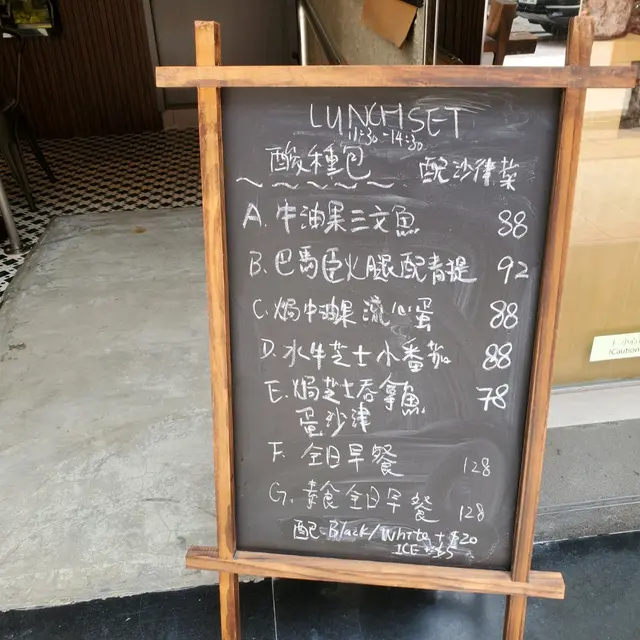 LUNCH SET
11:30-14:30
酸種包 配沙律菜
A. 牛油果三文魚 88
B. 巴馬臣火腿配青提 92
C. 焗牛油果流心蛋 88
D. 水牛芝士小番茄 88
E. 焗芝士吞拿魚 78
蛋沙津
F. 全日早餐 128
G. 素食全日早餐 128
配 Black/White +$20
ICE +$5
小心
(Caution